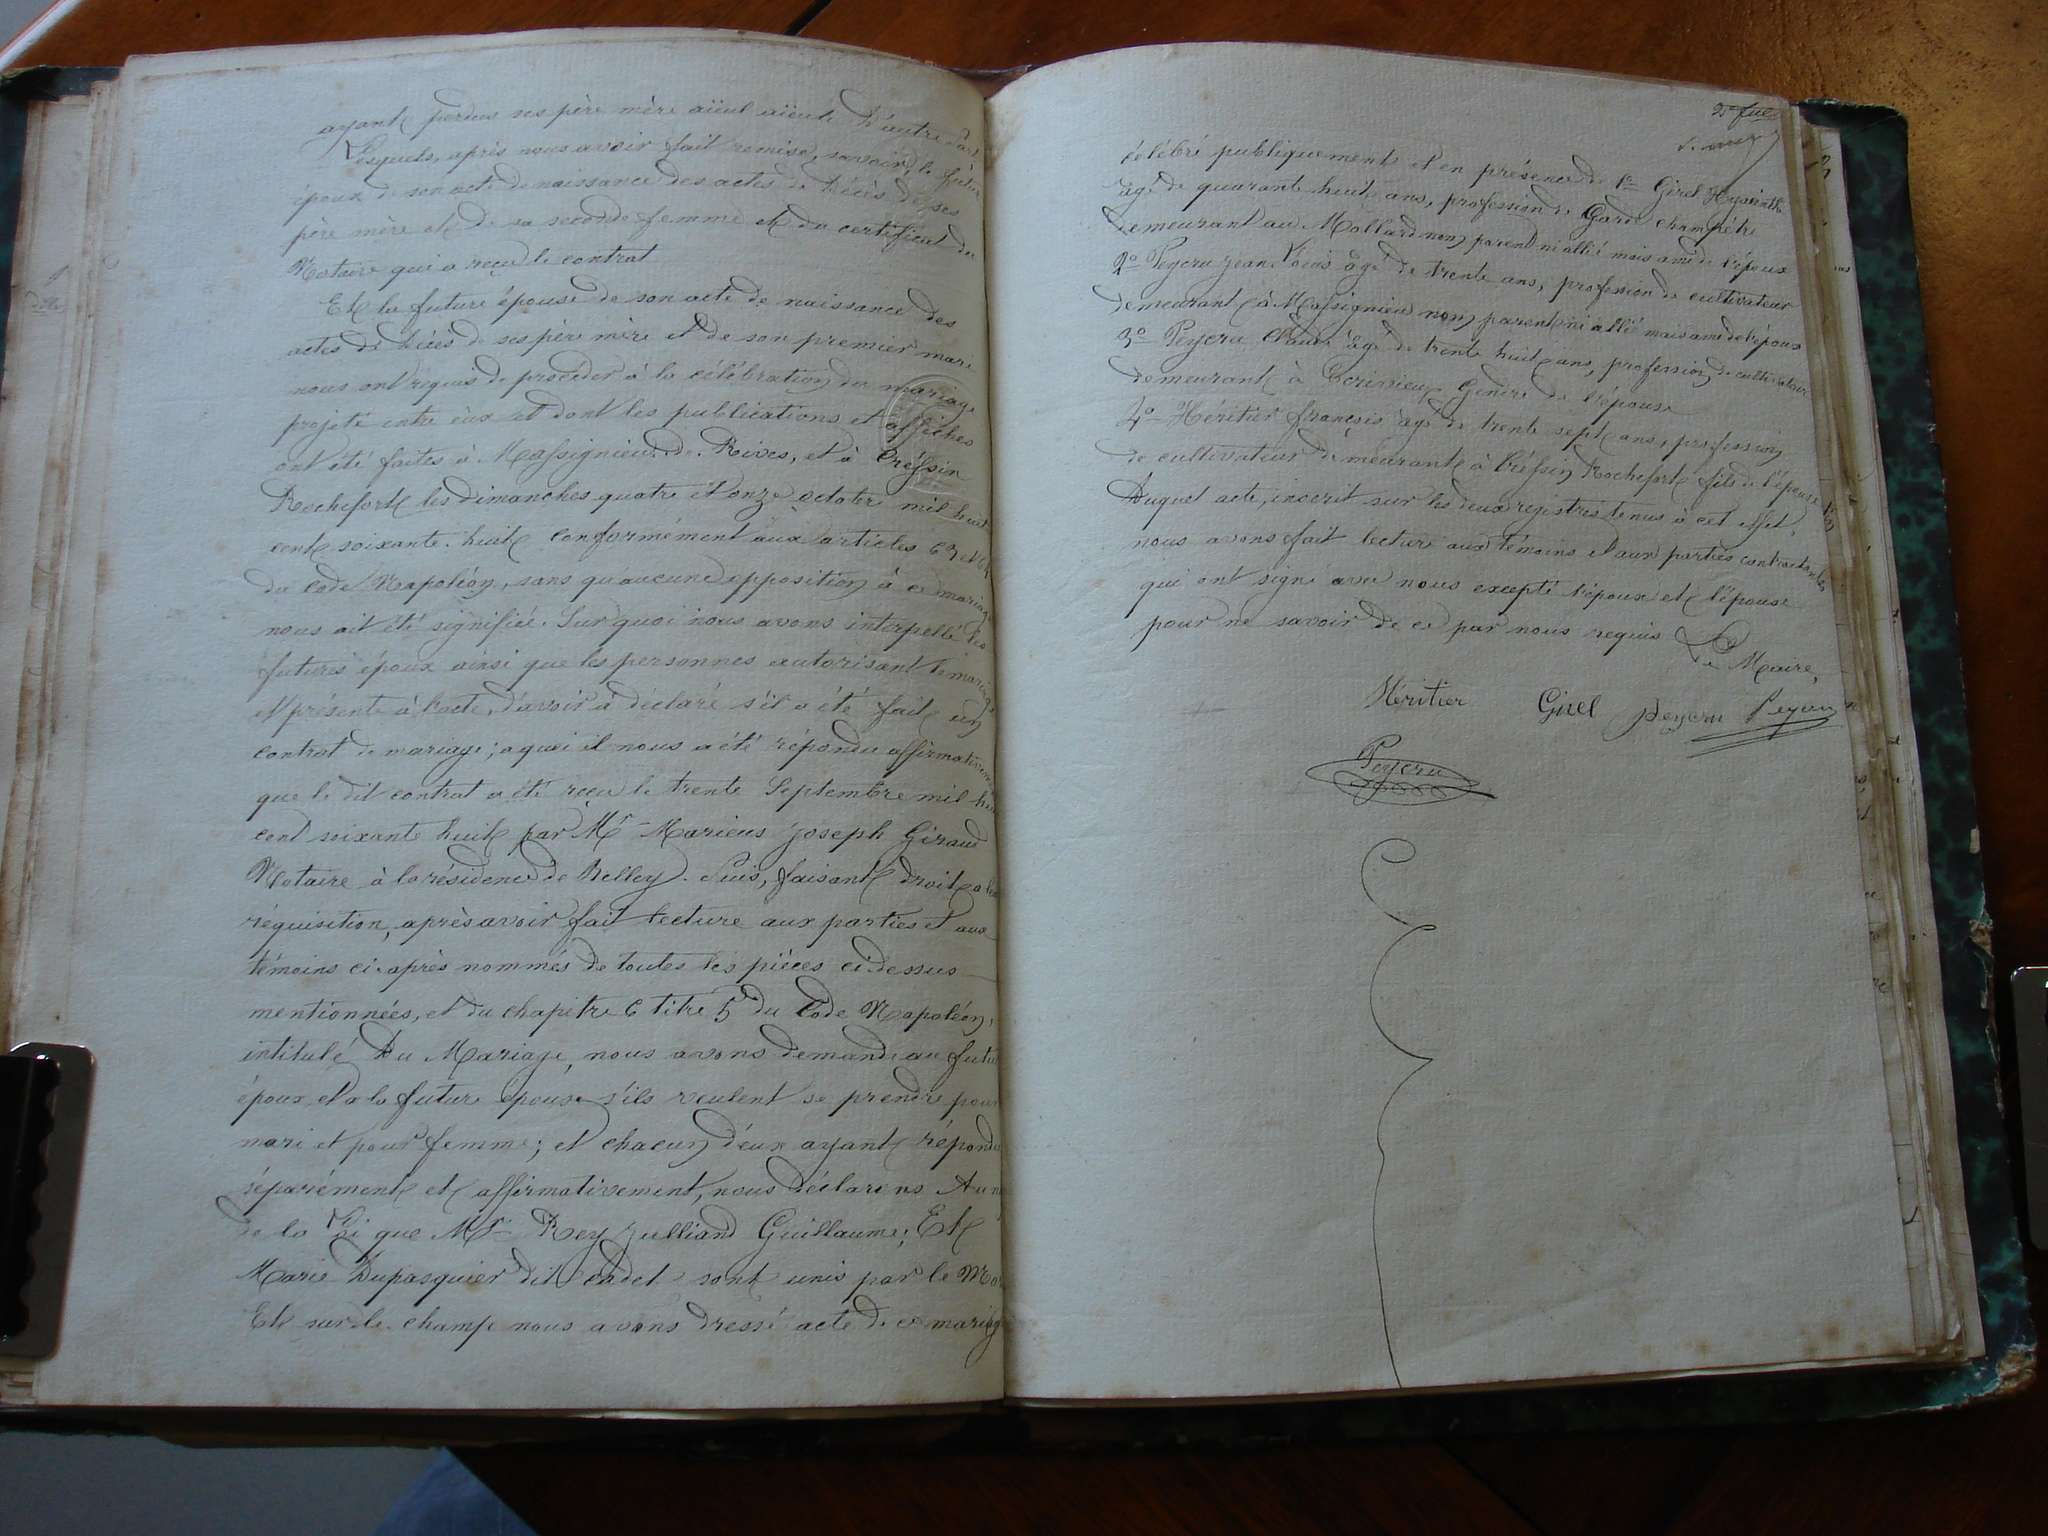 ayant perdus ses père mère aïeul aïeule D'autre part
Lesquels, après nous avoir fait remise, savoir, le futur
époux de son acte de naissance des actes de décès de ses
père mère et de sa seconde femme et du certificat du
Notaire qui a reçu le contrat
Et la future épouse de son acte de naissance des
actes de décès de ses père mère et de son premier mari
nous ont requis de procéder à la célébration du mariage
projeté entre eux et dont les publications et affiches
ont été faites à Massignieu-de-Rives, et à Créssin
Rochefort les dimanches quatre et onze octobre mil huit
cent soixante-huit conformément aux articles 63 et 64
du Code Napoléon, sans qu'aucune opposition à ce mariage
nous ait été signifiée. Sur quoi nous avons interpellé les
futurs époux ainsi que les personnes autorisant le mariage
et présente à l'acte, d'avoir à déclaré s'il a été fait un
contrat de mariage; a quoi il nous a été répondu affirmativement
que le dit contrat a été reçu le trente Septembre mil huit
cent soixante huit par Mr Marieus Joseph Giraud
Notaire à la résidence de Belley. Puis, faisant droit a leur
réquisition, après avoir fait lecture aux parties et aux
témoins ci-après nommés de toutes les pièces ci dessus
mentionnées, et du chapitre 6 titre 5 du Code Napoléon,
intitulé Du Mariage, nous avons demandé au futur
époux et a la future épouse s'ils veulent se prendre pour
mari et pour femme; et chacun d'eux ayant répondu
séparément et affirmativement, nous déclarons Au nom
de la Loi que Mr Rey Julliand Guillaume; Et
Marie Dupasquier dit cadet sont unis par le Ma
Et sur-le-champ nous avons dressé acte de ce mariage
célébré publiquement et en présence de 1° Girel Hyacinthe
âgé de quarante huit ans, profession de Garde champêtre
demeurant au Mollard non parent ni allié mais ami de l'époux
2° Peycru Jean Louis âgé de trente ans, profession de cultivateur
demeurant à Massignieu non parent ni allié mais ami de l'époux
3° Peycru Claude âgé de trente huit ans, profession de cultivateur
demeurant à Gendre de l'épouse
4° Héritier françois âgé de trente sept ans, profession
de cultivateur demeurant à Créssin Rochefort fils de l'épouse
Duquel acte, inscrit sur les deux registres tenus à cet effet,
nous avons fait lecture aux témoins et aux parties contractantes
qui ont signé avec nous excepté l'époux et l'épouse
pour ne savoir de ce par nous requis
Le Maire,
Héritier Girel Peycru Peycru
Peycru